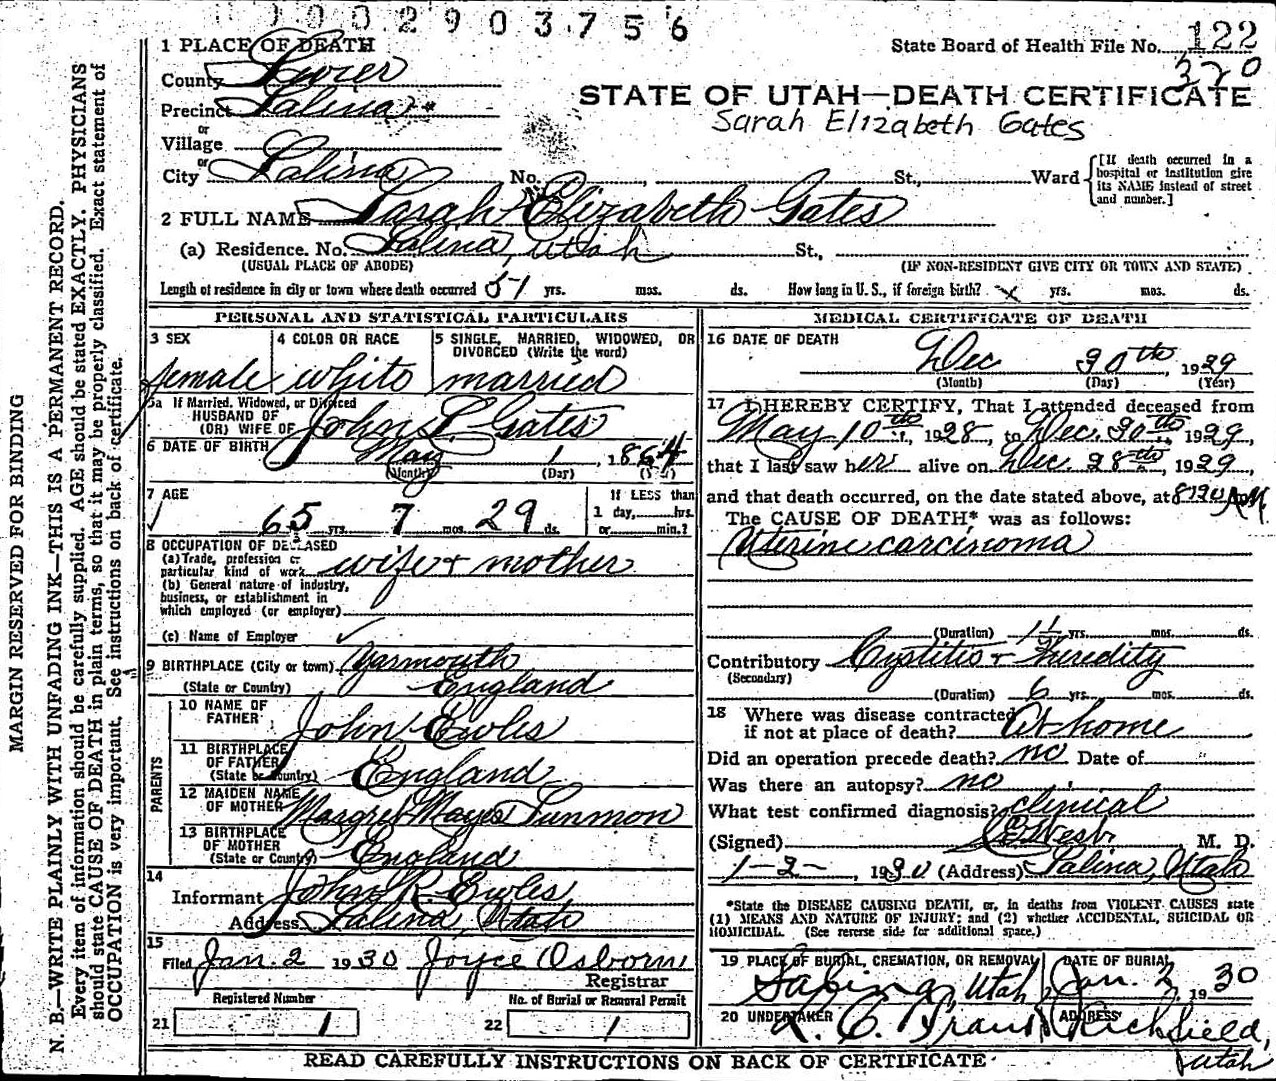 1 0 0 2 9 0 3 7 5 6
State Board of Health File No. 122
320
STATE OF UTAH—DEATH CERTIFICATE
Sarah Elizabeth Gates
1 PLACE OF DEATH
County Sevier
Precinct Salina
or
Village
or
City Salina No. , St., Ward
[If death occurred in a
hospital or institution give
its NAME instead of street
and number.]
2 FULL NAME Sarah Elizabeth Gates
(a) Residence. No. Salina, Utah St.,
(USUAL PLACE OF ABODE) (IF NON-RESIDENT GIVE CITY OR TOWN AND STATE)
Length of residence in city or town where death occurred 51 yrs. mos. ds. How long in U. S., if foreign birth? x yrs. mos. ds.
PERSONAL AND STATISTICAL PARTICULARS
3 SEX
female
4 COLOR OR RACE
white
5 SINGLE, MARRIED, WIDOWED, OR
DIVORCED (Write the word)
married
5a If Married, Widowed, or Divorced
HUSBAND OF
(OR) WIFE OF John L. Gates
6 DATE OF BIRTH May 1, 1864
(Month) (Day) (Year)
7 AGE
65 yrs. 7 mos. 29 ds.
If LESS than
1 day, hrs.
or min.?
8 OCCUPATION OF DECEASED
(a) Trade, profession or
particular kind of work wife + mother
(b) General nature of industry,
business, or establishment in
which employed (or employer)
(c) Name of Employer
9 BIRTHPLACE (City or town) Yarmouth
(State or Country) England
PARENTS
10 NAME OF
FATHER John Ewles
11 BIRTHPLACE
OF FATHER
(State or Country) England
12 MAIDEN NAME
OF MOTHER Margret Mayes Sunmon
13 BIRTHPLACE
OF MOTHER
(State or Country) England
14
Informant John R. Ewles,
Address Salina, Utah
15
Filed Jan. 2 1930 Joyce Osborn
Registrar
Registered Number No. of Burial or Removal Permit
21 1 22 1
MEDICAL CERTIFICATE OF DEATH
16 DATE OF DEATH
Dec 30th, 1929
(Month) (Day) (Year)
17 I HEREBY CERTIFY, That I attended deceased from
May 10th, 1928, to Dec. 30th, 1929,
that I last saw her alive on Dec. 28th, 1929,
and that death occurred, on the date stated above, at 8:30 A.M.
The CAUSE OF DEATH* was as follows:
Uterine carcinoma
(Duration) 1½ yrs. mos. ds.
Contributory Cystitis + Heredity
(Secondary)
(Duration) 6 yrs. mos. ds.
18 Where was disease contracted
if not at place of death? At home
Did an operation precede death? no Date of
Was there an autopsy? no
What test confirmed diagnosis? clinical
(Signed) West M. D.
1-2-, 1930 (Address) Salina, Utah
*State the DISEASE CAUSING DEATH, or, in deaths from VIOLENT CAUSES state
(1) MEANS AND NATURE OF INJURY; and (2) whether ACCIDENTAL, SUICIDAL OR
HOMICIDAL. (See reverse side for additional space.)
19 PLACE OF BURIAL, CREMATION, OR REMOVAL DATE OF BURIAL
Salina, Utah Jan. 2, 1930
20 UNDERTAKER ADDRESS
Richfield,
Utah
READ CAREFULLY INSTRUCTIONS ON BACK OF CERTIFICATE
MARGIN RESERVED FOR BINDING
N. B.—WRITE PLAINLY WITH UNFADING INK—THIS IS A PERMANENT RECORD.
Every item of information should be carefully supplied. AGE should be stated EXACTLY. PHYSICIANS
should state CAUSE OF DEATH in plain terms, so that it may be properly classified. Exact statement of
OCCUPATION is very important. See instructions on back of certificate.